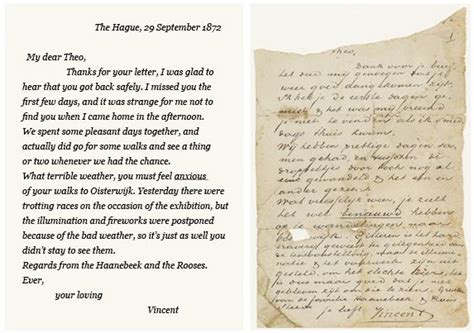 The Hague, 29 September 1872
My dear Theo,
Thanks for your letter, I was glad to
hear that you got back safely. I missed you the
first few days, and it was strange for me not to
find you when I came home in the afternoon.
We spent some pleasant days together, and
actually did go for some walks and see a thing
or two whenever we had the chance.
What terrible weather, you must feel anxious
of your walks to Oisterwijk. Yesterday there were
trotting races on the occasion of the exhibition, but
the illumination and fireworks were postponed
because of the bad weather, so it's just as well you
didn't stay to see them.
Regards from the Haanebeek and the Rooses.
Ever,
your loving
Vincent
Theo,
Dank voor je brief,
het deed mij genoegen dat je
weer goed aangekomen zijt.
Ik heb je de eerste dagen ge-
mist & het was mij vreemd
je niet te vinden als ik smid-
dags thuis kwam.
Wij hebben prettige dagen sa-
men gehad, en tusschen de
droppeltjes door toch nog al
eens gewandeld & het een en
ander gezien.
Wat vreeselijk weer, je zult
het wel benauwd hebben
op je wandelingen naar
draverij geweest ter gelegenheid van
de tentoonstelling, maar de illumi-
natie & het vuurwerk zijn uit-
gesteld, om het slechte weer, het is
dus maar goed dat je niet
gebleven zijt om die te zien. Groeten
van de familie Haanebeek &
je liefh. Vincent